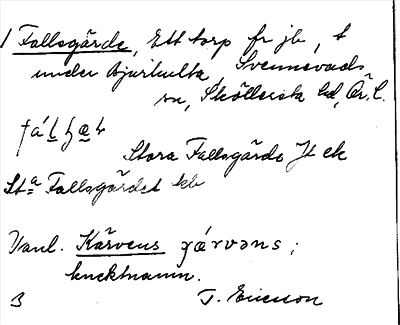 1 Fallsgärde, Ett torp fr jb, t
under Bjurhulta, Svennevads
sn, Sköllersta hd, Ör. l.
Stora Fallsgärde Jt ek
St.a Fallsgärdet kb
Vanl. Kärvens
knektnamn.
3 T. Ericsson